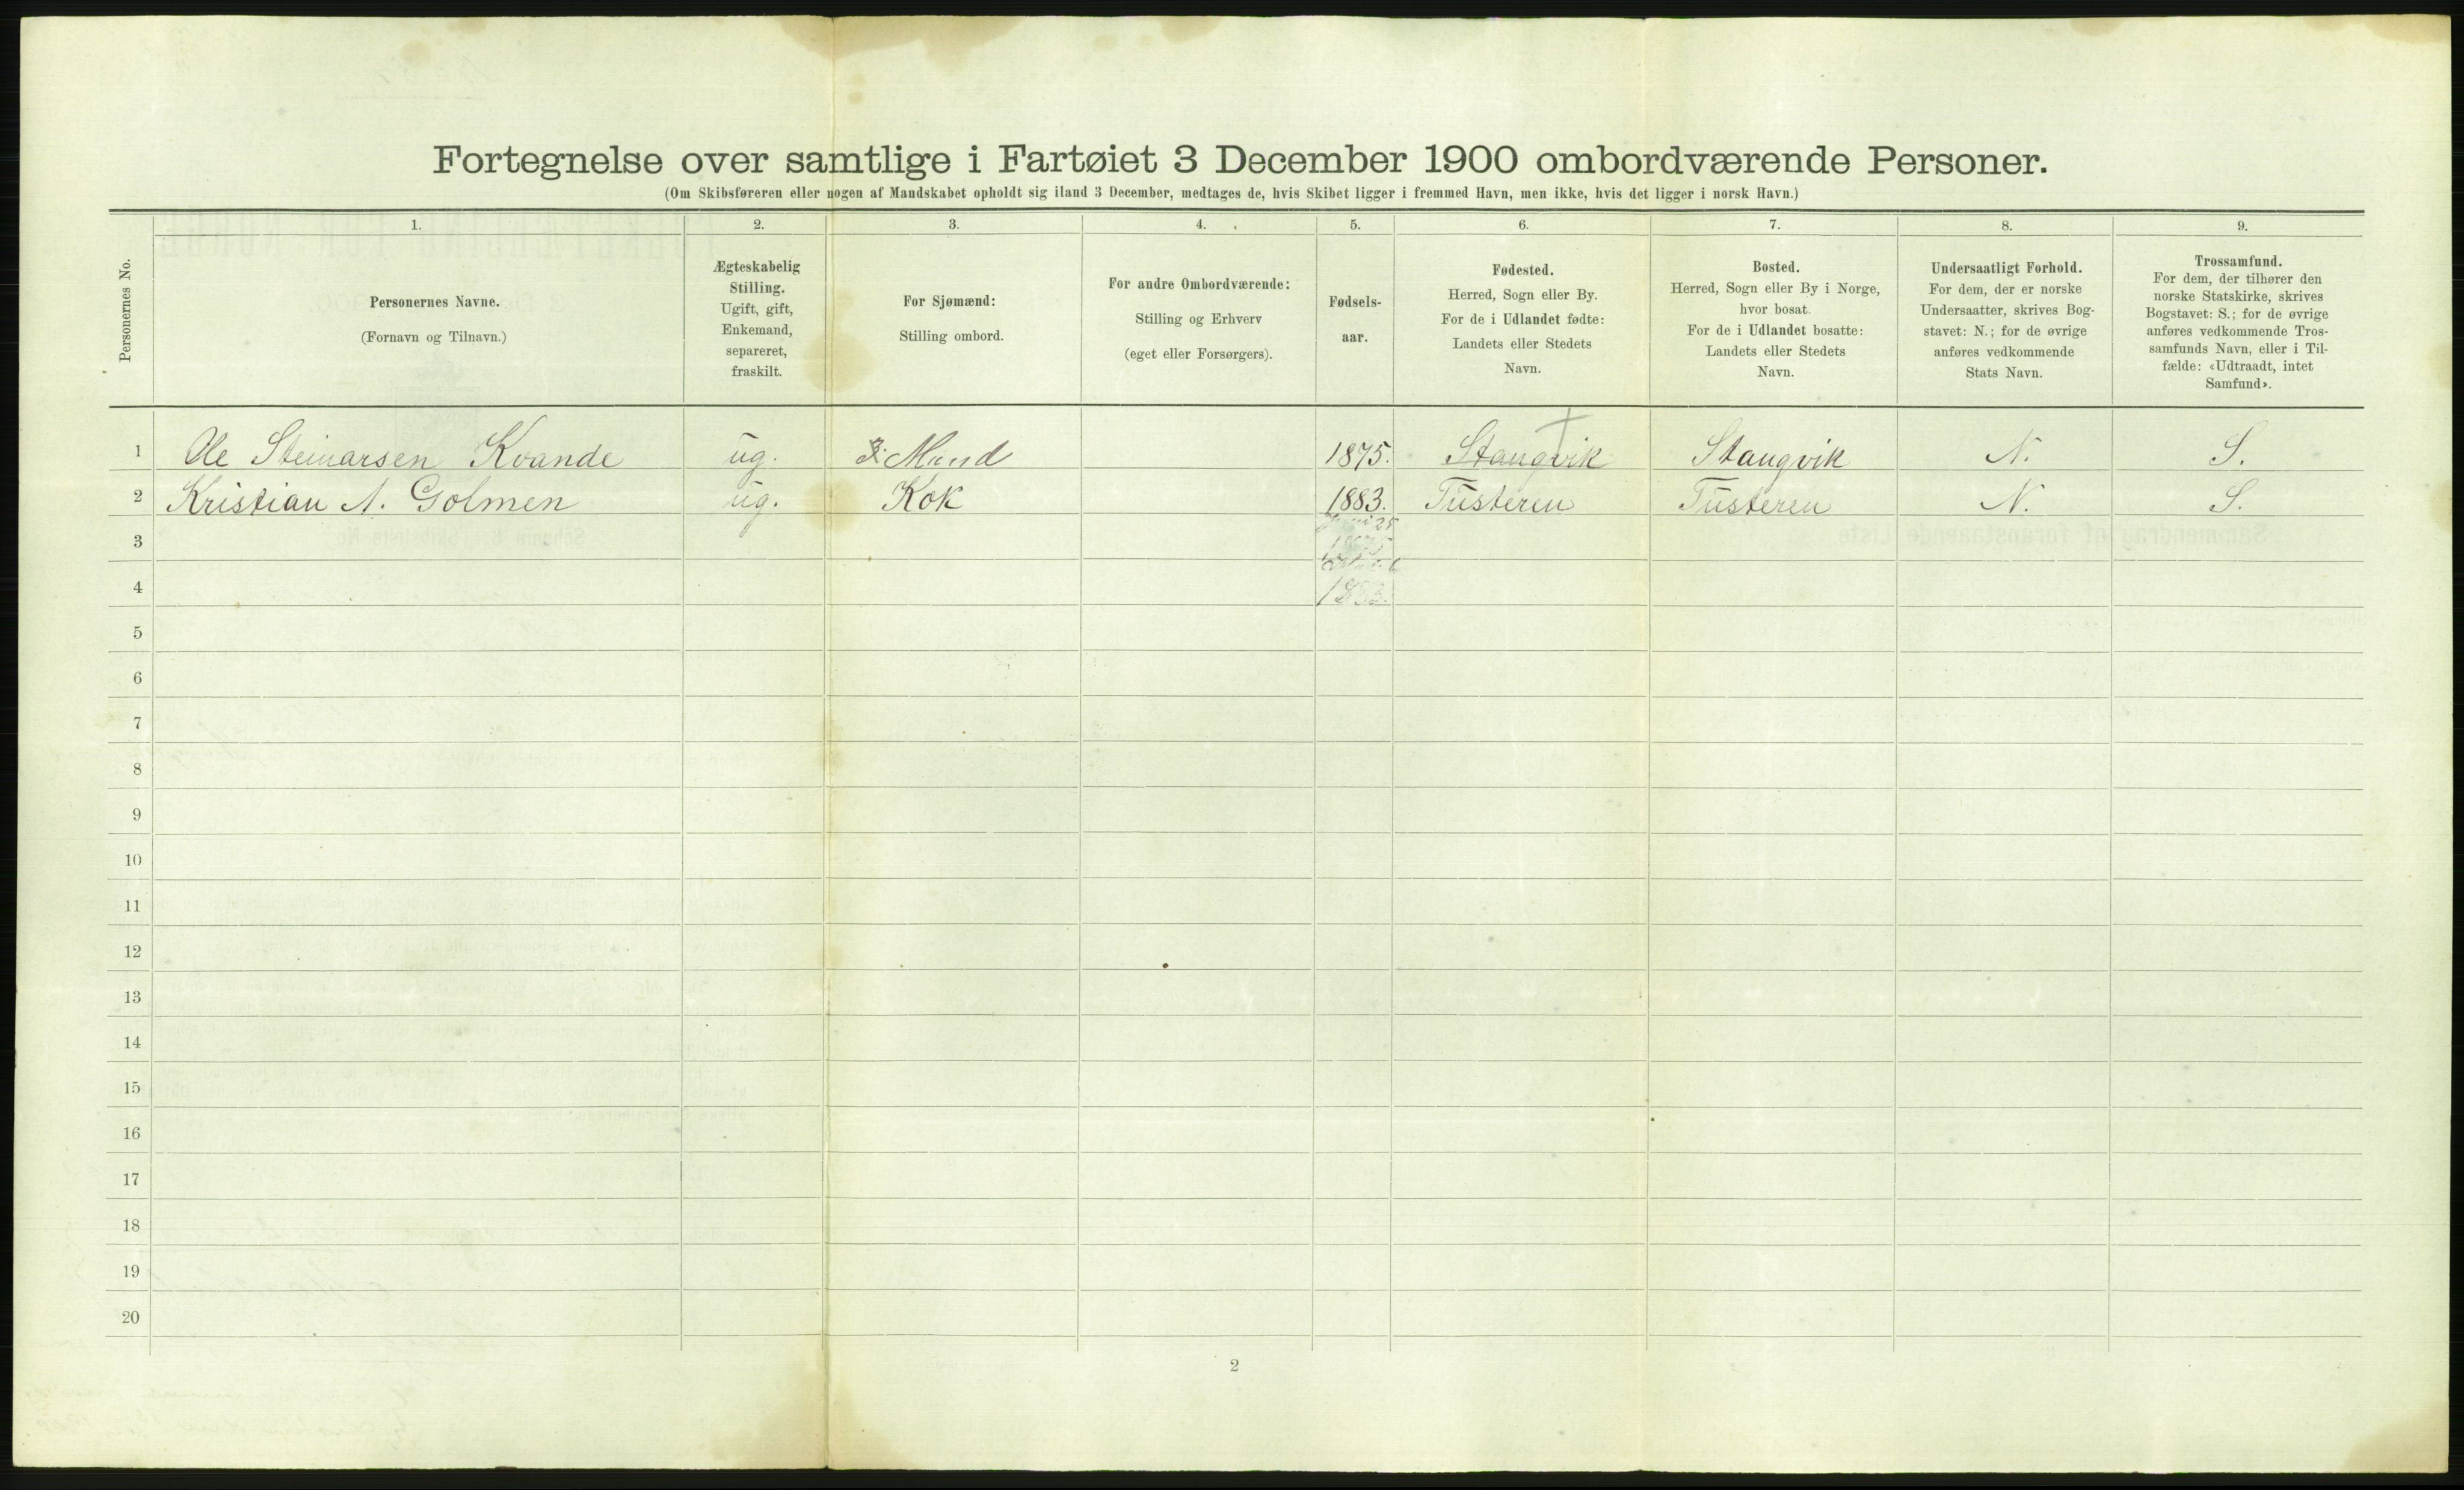 Fortegnelse over samtlige i Fartøiet 3 December 1900 ombordværende Personer.
(Om Skibsføreren eller nogen af Mandskabet opholdt sig iland 3 December, medtages de, hvis Skibet ligger i fremmed Havn, men ikke, hvis det ligger i norsk Havn.)
Personernes No.
1. 2. 3. 4. 5. 6. 7. 8. 9.
Personernes Navne.
(Fornavn og Tilnavn.)
Ægteskabelig
Stilling.
Ugift, gift,
Enkemand,
separeret,
fraskilt.
For Sjømænd:
Stilling ombord.
For andre Ombordværende:
Stilling og Erhverv
(eget eller Forsørgers).
Fødsels-
aar.
Fødested.
Herred, Sogn eller By.
For de i Udlandet fødte:
Landets eller Stedets
Navn.
Bosted.
Herred, Sogn eller By i Norge,
hvor bosat.
For de i Udlandet bosatte:
Landets eller Stedets
Navn.
Undersaatligt Forhold.
For dem, der er norske
Undersaatter, skrives Bog-
stavet: N.; for de øvrige
anføres vedkommende
Stats Navn.
Trossamfund.
For dem, der tilhører den
norske Statskirke, skrives
Bogstavet: S.; for de øvrige
anføres vedkommende Tros-
samfunds Navn, eller i Til-
fælde: «Udtraadt, intet
Samfund».
1 Ole Steinarsen Kvande ug. Mand 1875. Stangvik Stangvik N. S.
2 Kristian A. Golmen ug. Kok 1883. Tusteren Tusteren N. S.
3
4
5
6
7
8
9
10
11
12
13
14
15
16
17
18
19
20
2